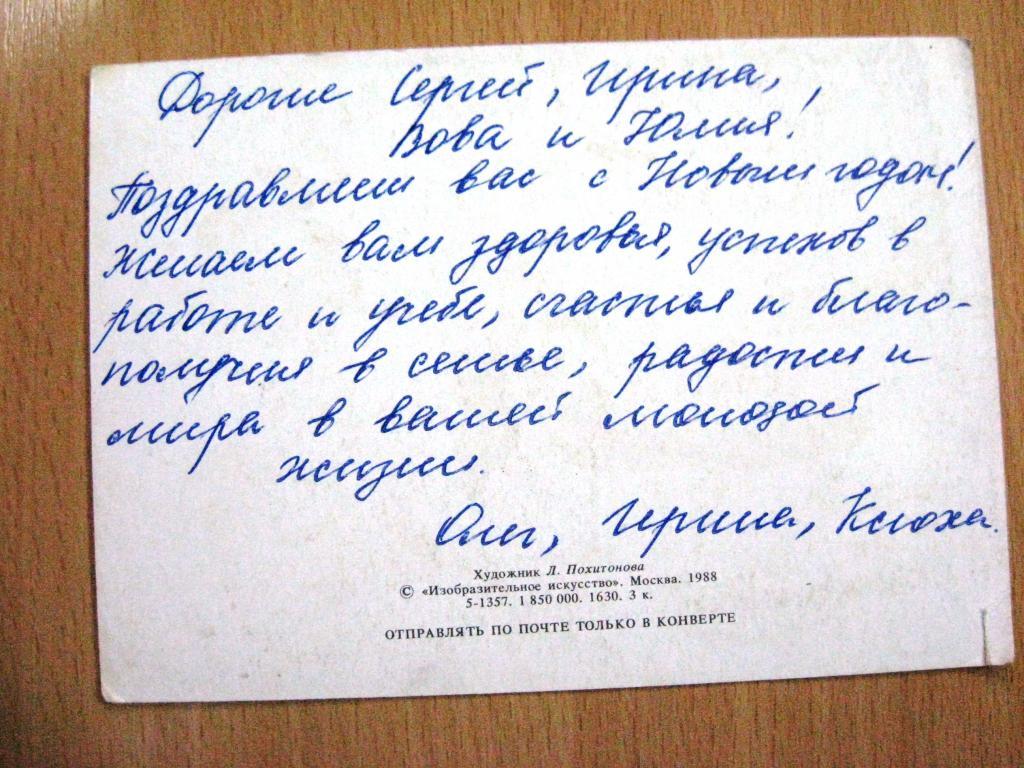 Дорогие Сергей, Ирина,
Вова и Юлия!
Поздравляем вас с Новым годом!
Желаем вам здоровья, успехов в
работе и учебе, счастья и благо-
получия в семье, радости и
мира в вашей молодой
жизни.
Олег, Ирина, Ксюха.
Художник Л. Похитонова
© «Изобразительное искусство». Москва. 1988
5-1357. 1 850 000. 1630. 3 к.
ОТПРАВЛЯТЬ ПО ПОЧТЕ ТОЛЬКО В КОНВЕРТЕ